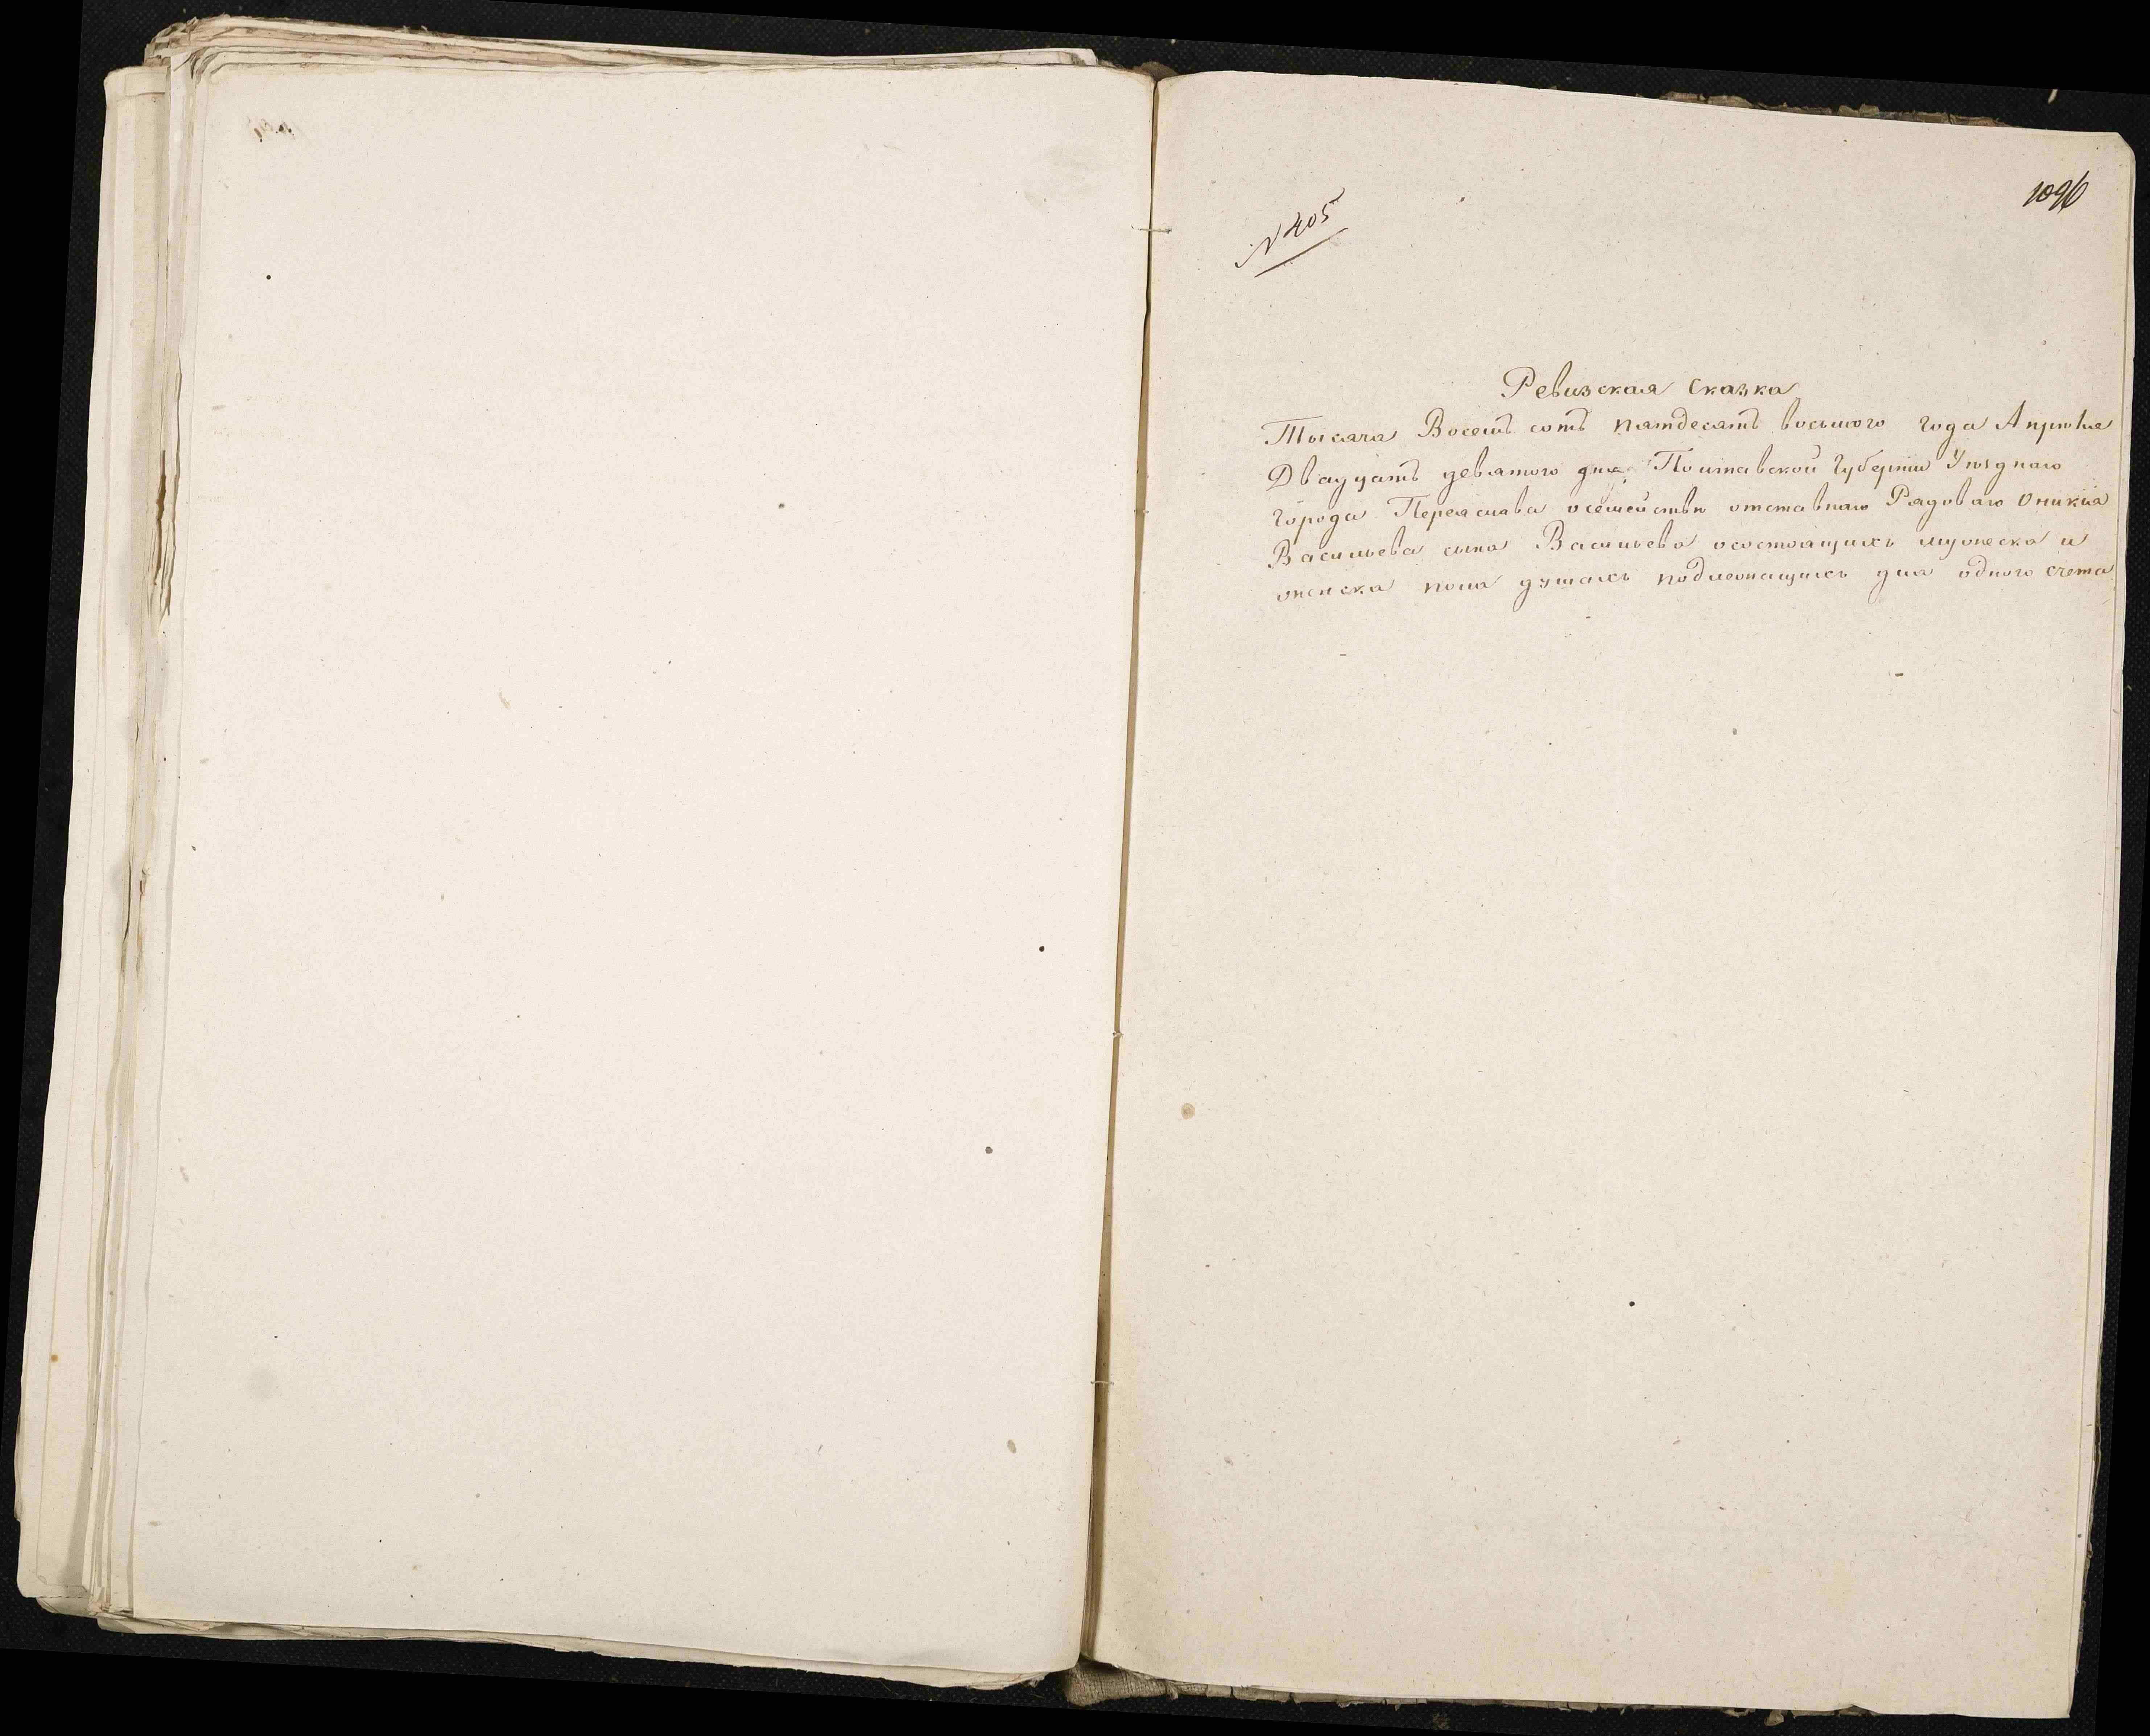 1096
N 405
Ревизская Сказка
Тысяча Восемъ сотъ пятдесятъ восьмого года Апреля
Двадцатъ девятого дня Полтавской Губерніи Уезднаго
города Переяслава осемействе отставнаго Рядоваго Оникия
Васильева сына Васильева осостоящихъ мужеска и
женска пола душахъ подлежащихъ для одного счета